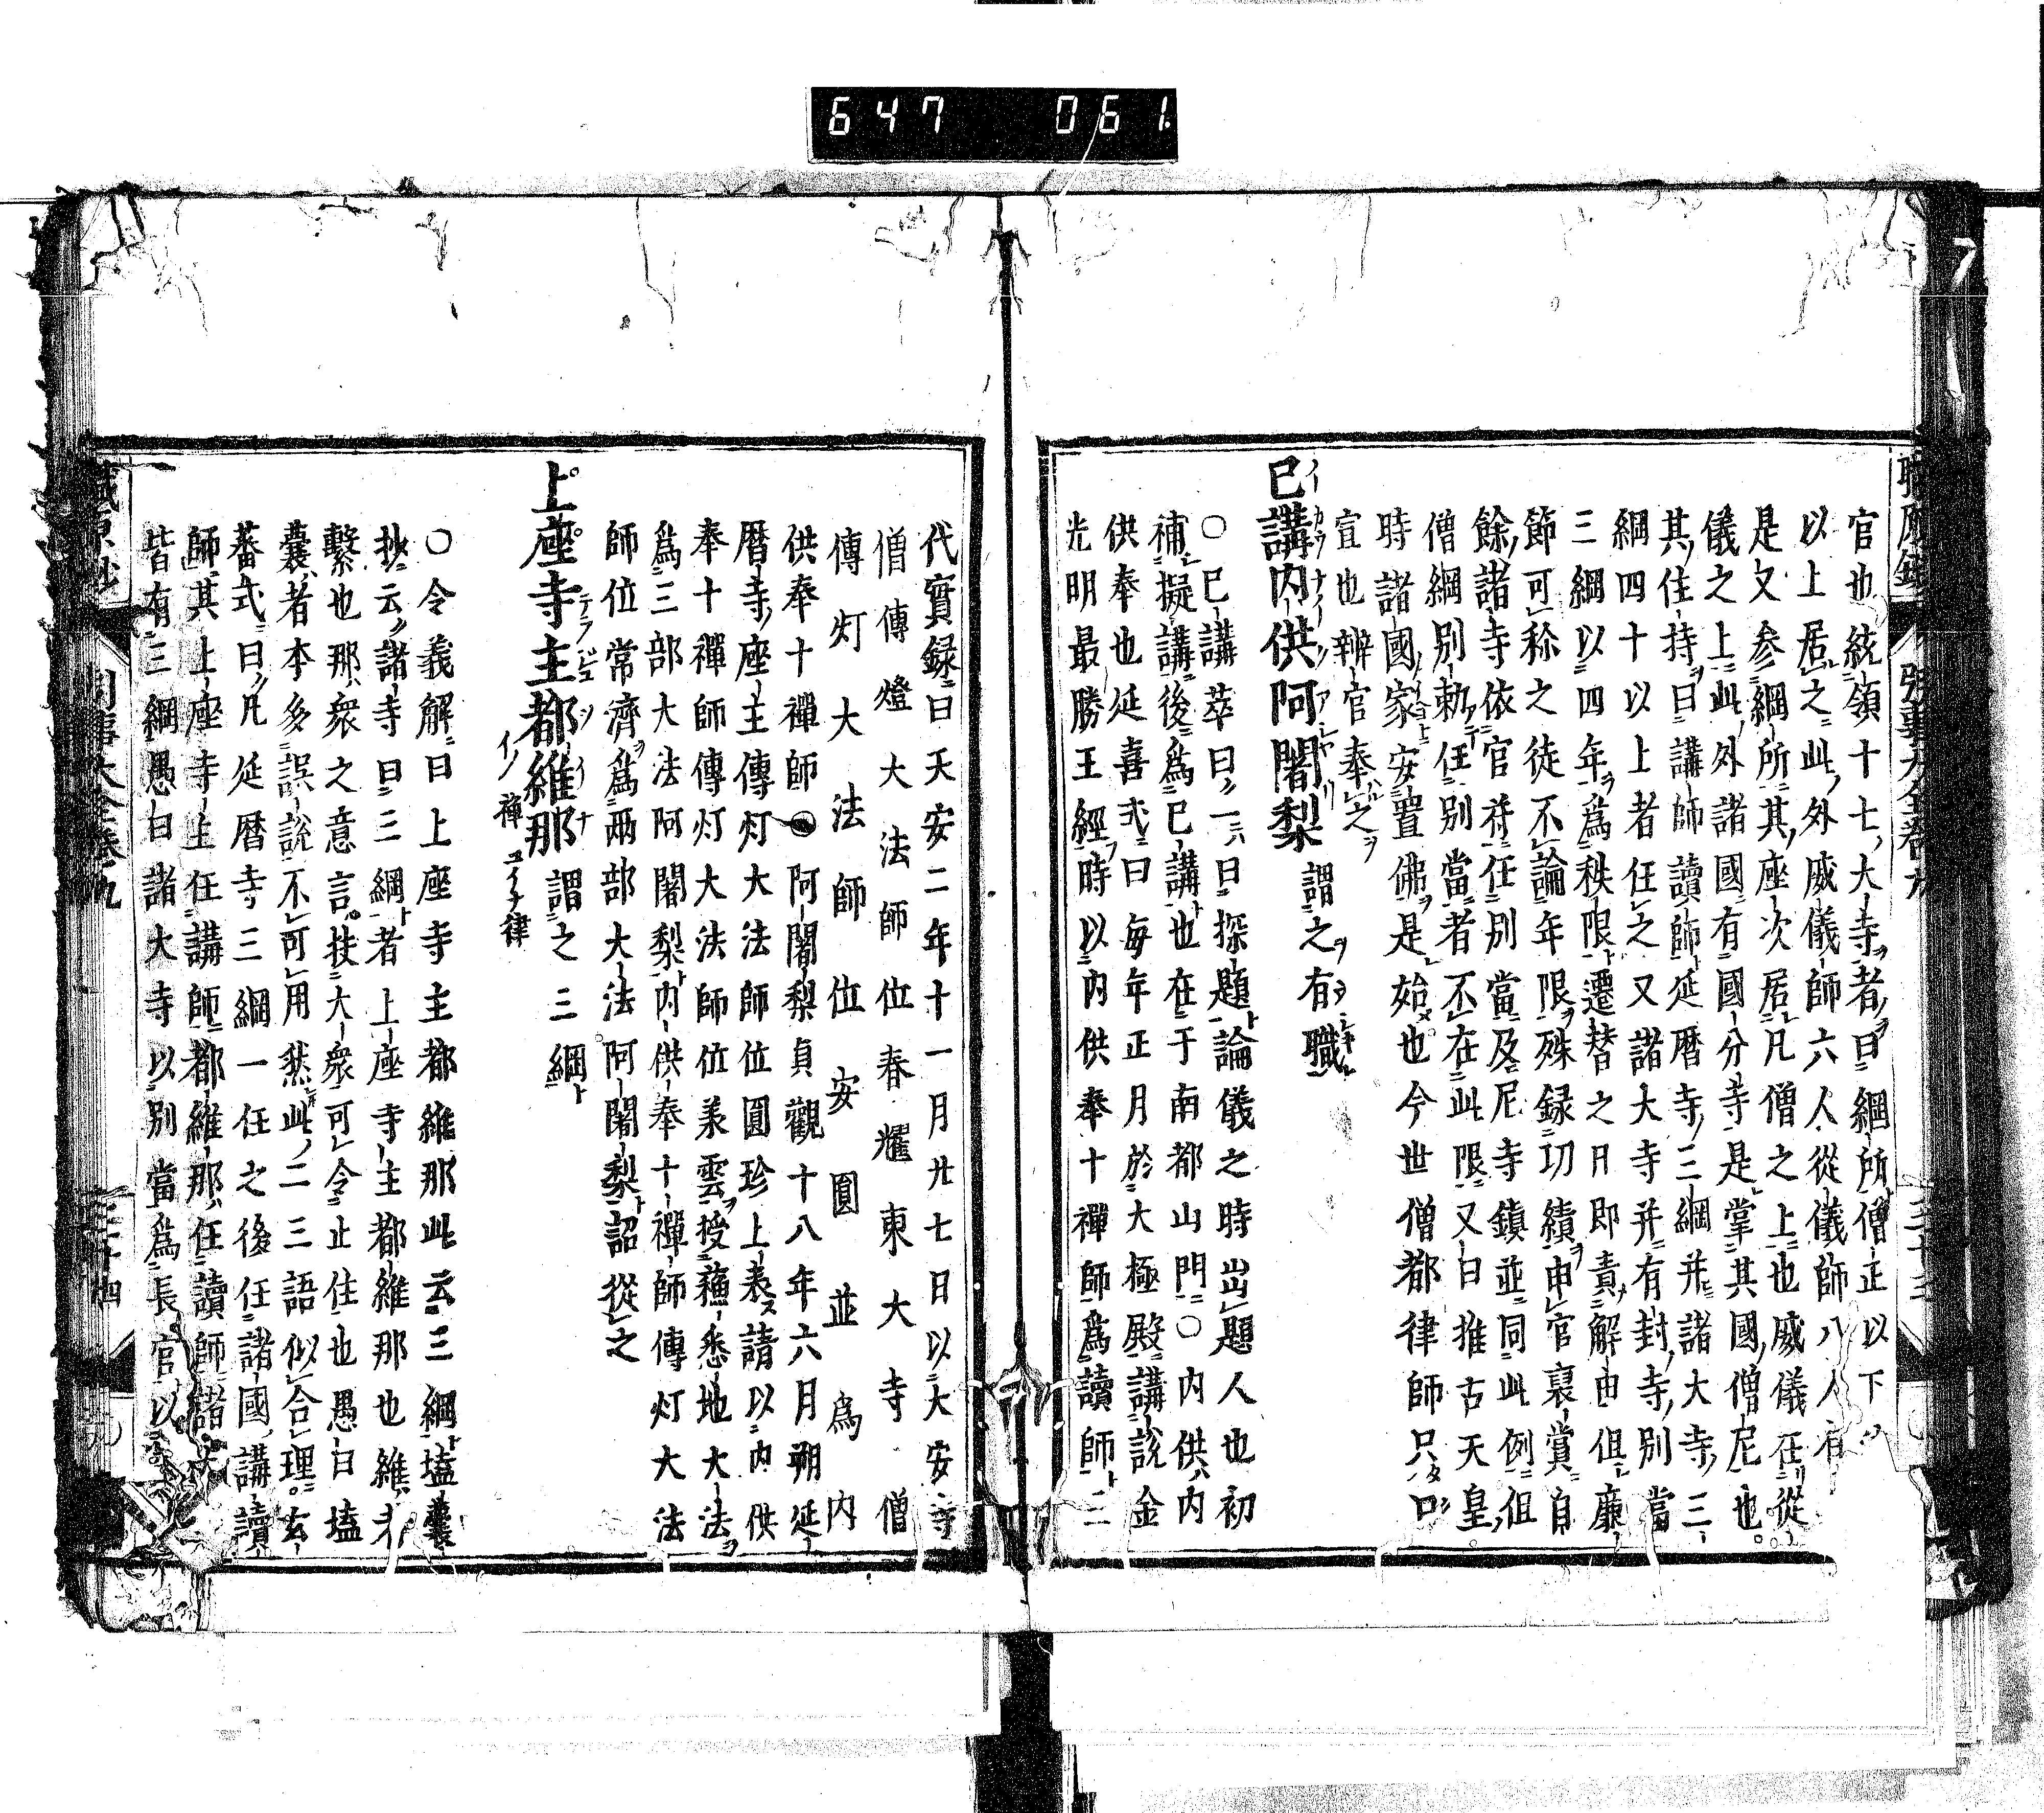 647 061
官也統領十七大寺者曰綱所僧正以下
以上居之此外威儀師六人從儀師八人有
是又參綱所其座次居凡僧之上也威儀任從
儀之上此外諸國有國分寺是掌其國僧尼也
其住持曰講師讀師延曆寺三綱并諸大寺三
綱四十以上者任之又諸大寺并有封寺別當
三綱以四年爲秩限遷替之日即責解由但廉
節可称之徒不論年限殊録功績申官褒賞自
餘諸寺依官符任別當及尼寺鎮並同此例但
僧綱別勅任別當者不在此限又曰推古天皇
時諸國家安置佛是始也今世僧都律師只口
宣也辨官奉之
已講内供阿闍梨 謂之有職
〇已講萃曰一六曰探題論儀之時出題人也初
補擬講後爲已講也在于南都山門〇内供内
供奉也延喜式曰每年正月於大極殿講說金
光明最勝王經時以内供奉十禪師爲讀師二
代實録曰天安二年十一月廿七日以大安寺
僧傳燈大法師位春耀東大寺僧
傳灯大法師位安圓並爲内
供奉十禪師●阿闍梨貞觀十八年六月朔延
曆寺座主傳灯大法師位圓珍上表請以内供
奉十禪師傳灯大法師位義雲授蘓悉地大法
爲三部大法阿闍梨内供奉十禪師傳灯大法
師位常濟爲兩部大法阿闍梨詔從之
上座寺主都維那 謂之三綱
禪 律
〇令義解曰上座寺主都維那此云三綱壒囊
抄云諸寺曰三綱者上座寺主都維那也維
繫也那衆之意言扶大衆可令止住也愚曰壒
囊者本多誤說不可用然此二三語似合理玄
蕃式曰凡延曆寺三綱一任之後任諸國講讀
師其上座寺主任講師都維那任讀師諸大
皆有三綱愚曰諸大寺以別當爲長官以